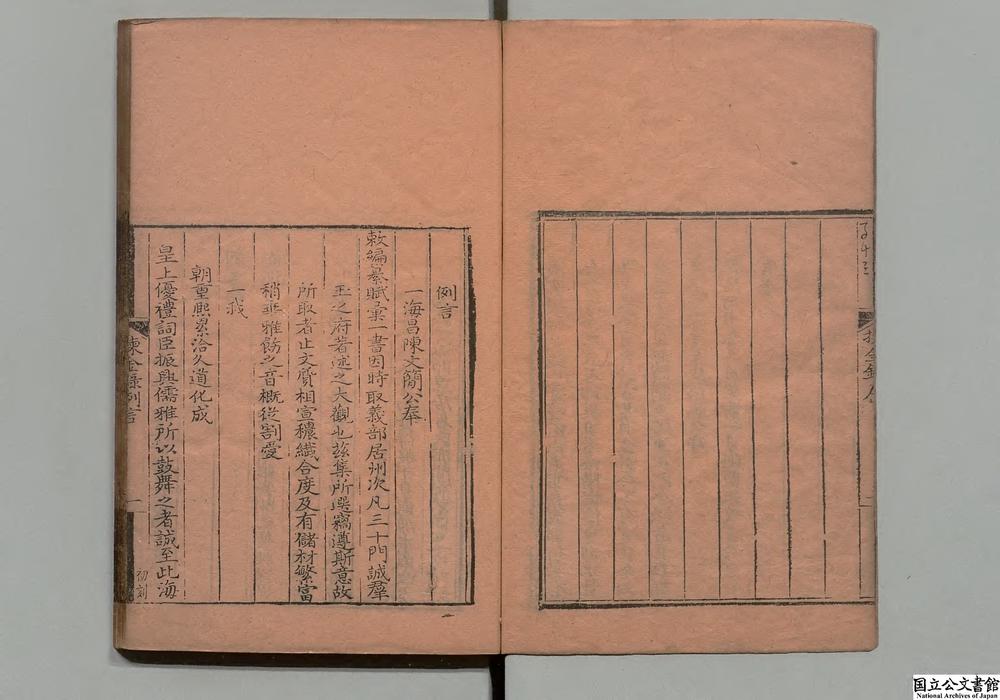 例言
一海昌陳文簡公奉
敕編纍賦彙一書因時取義部居州次凡三十門誠羣
玉之府著述之大觀也茲集所選竊遵斯意故
所取者止文質相宣穠纖合度及有儲材繁富
稍乖雅飭之音概從割愛
一我
朝重熙累洽久道化成
皇上優禮詞臣振興儒雅所以鼓舞之者誠至此海
揀金錄例言
一
初刻
国立公文書館
National Archives of Japan